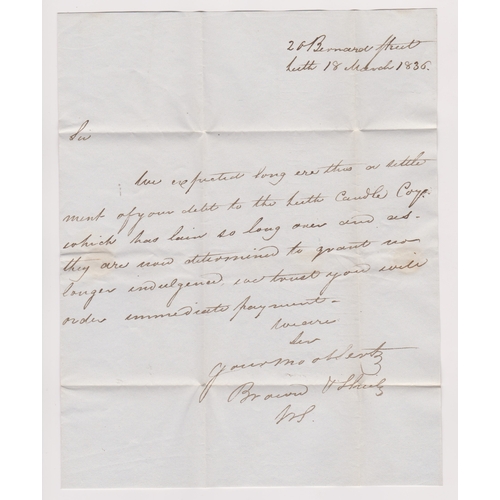 20 Bernard Street
Leith 18 March 1836.
Sir
We expected long ere this a settle
ment of your debt to the Leith Candle Coy.
which has lain so long over and as
they are now determined to grant no
longer indulgence we trust you will
order immediate payment –
We are
Sir
your mo ob Sertz
Brown &
WS.